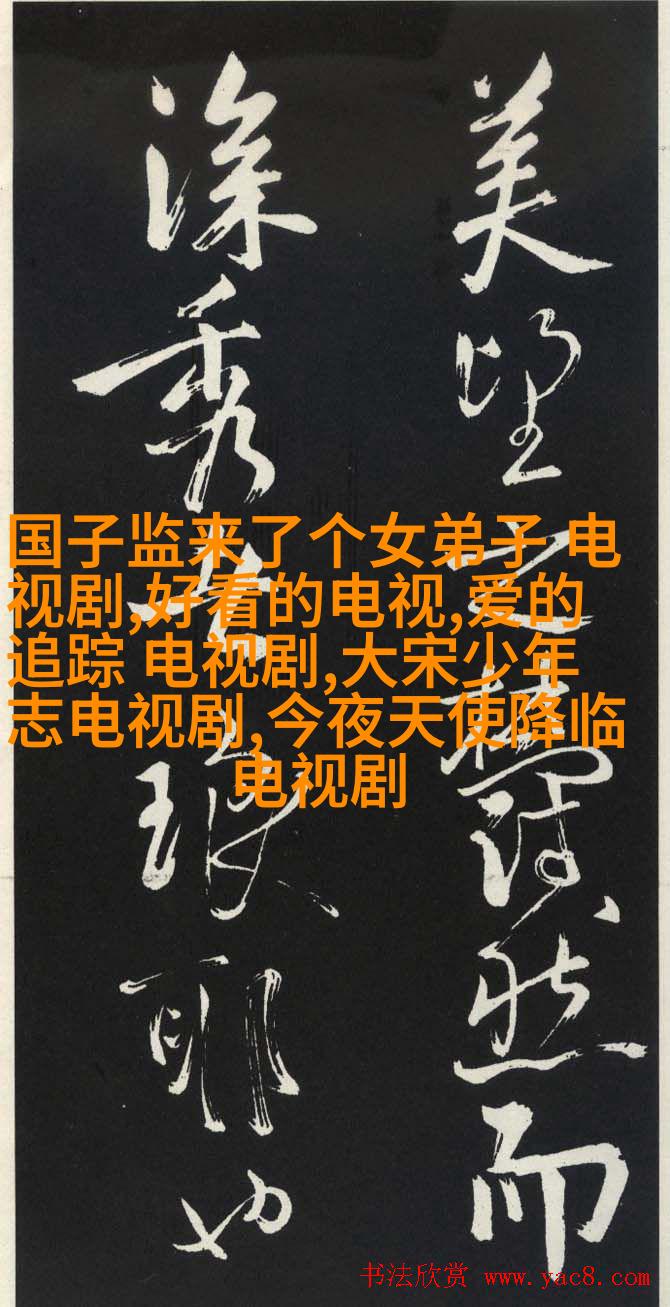 美望之蔚然而
深秀者琅耶也
国子监来了个女弟子 电
视剧,好看的电视,爱的
追踪 电视剧,大宋少年
志电视剧,今夜天使降临
电视剧
书法欣赏 www.yac8.com